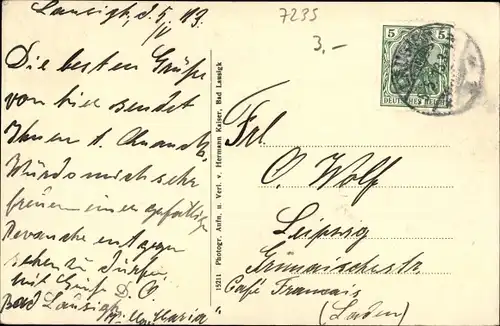 Lausigk, d. 5/V 13
7235
3,-
5 5
DEUTSCHES REICH
Die besten Grüße
von hier sendet
Ihnen
Würde mich sehr
freuen einer gefälligen
Revanche entgegen
sehen zu dürfen
mit Gruß D. O
Bad Lausigk
15211 Photogr. Aufn. u. Verl. v. Hermann Kaiser, Bad Lausigk
Frl.
C. Wolf
Leipzig
Grimmaischestr
Café Francais
(Laden)